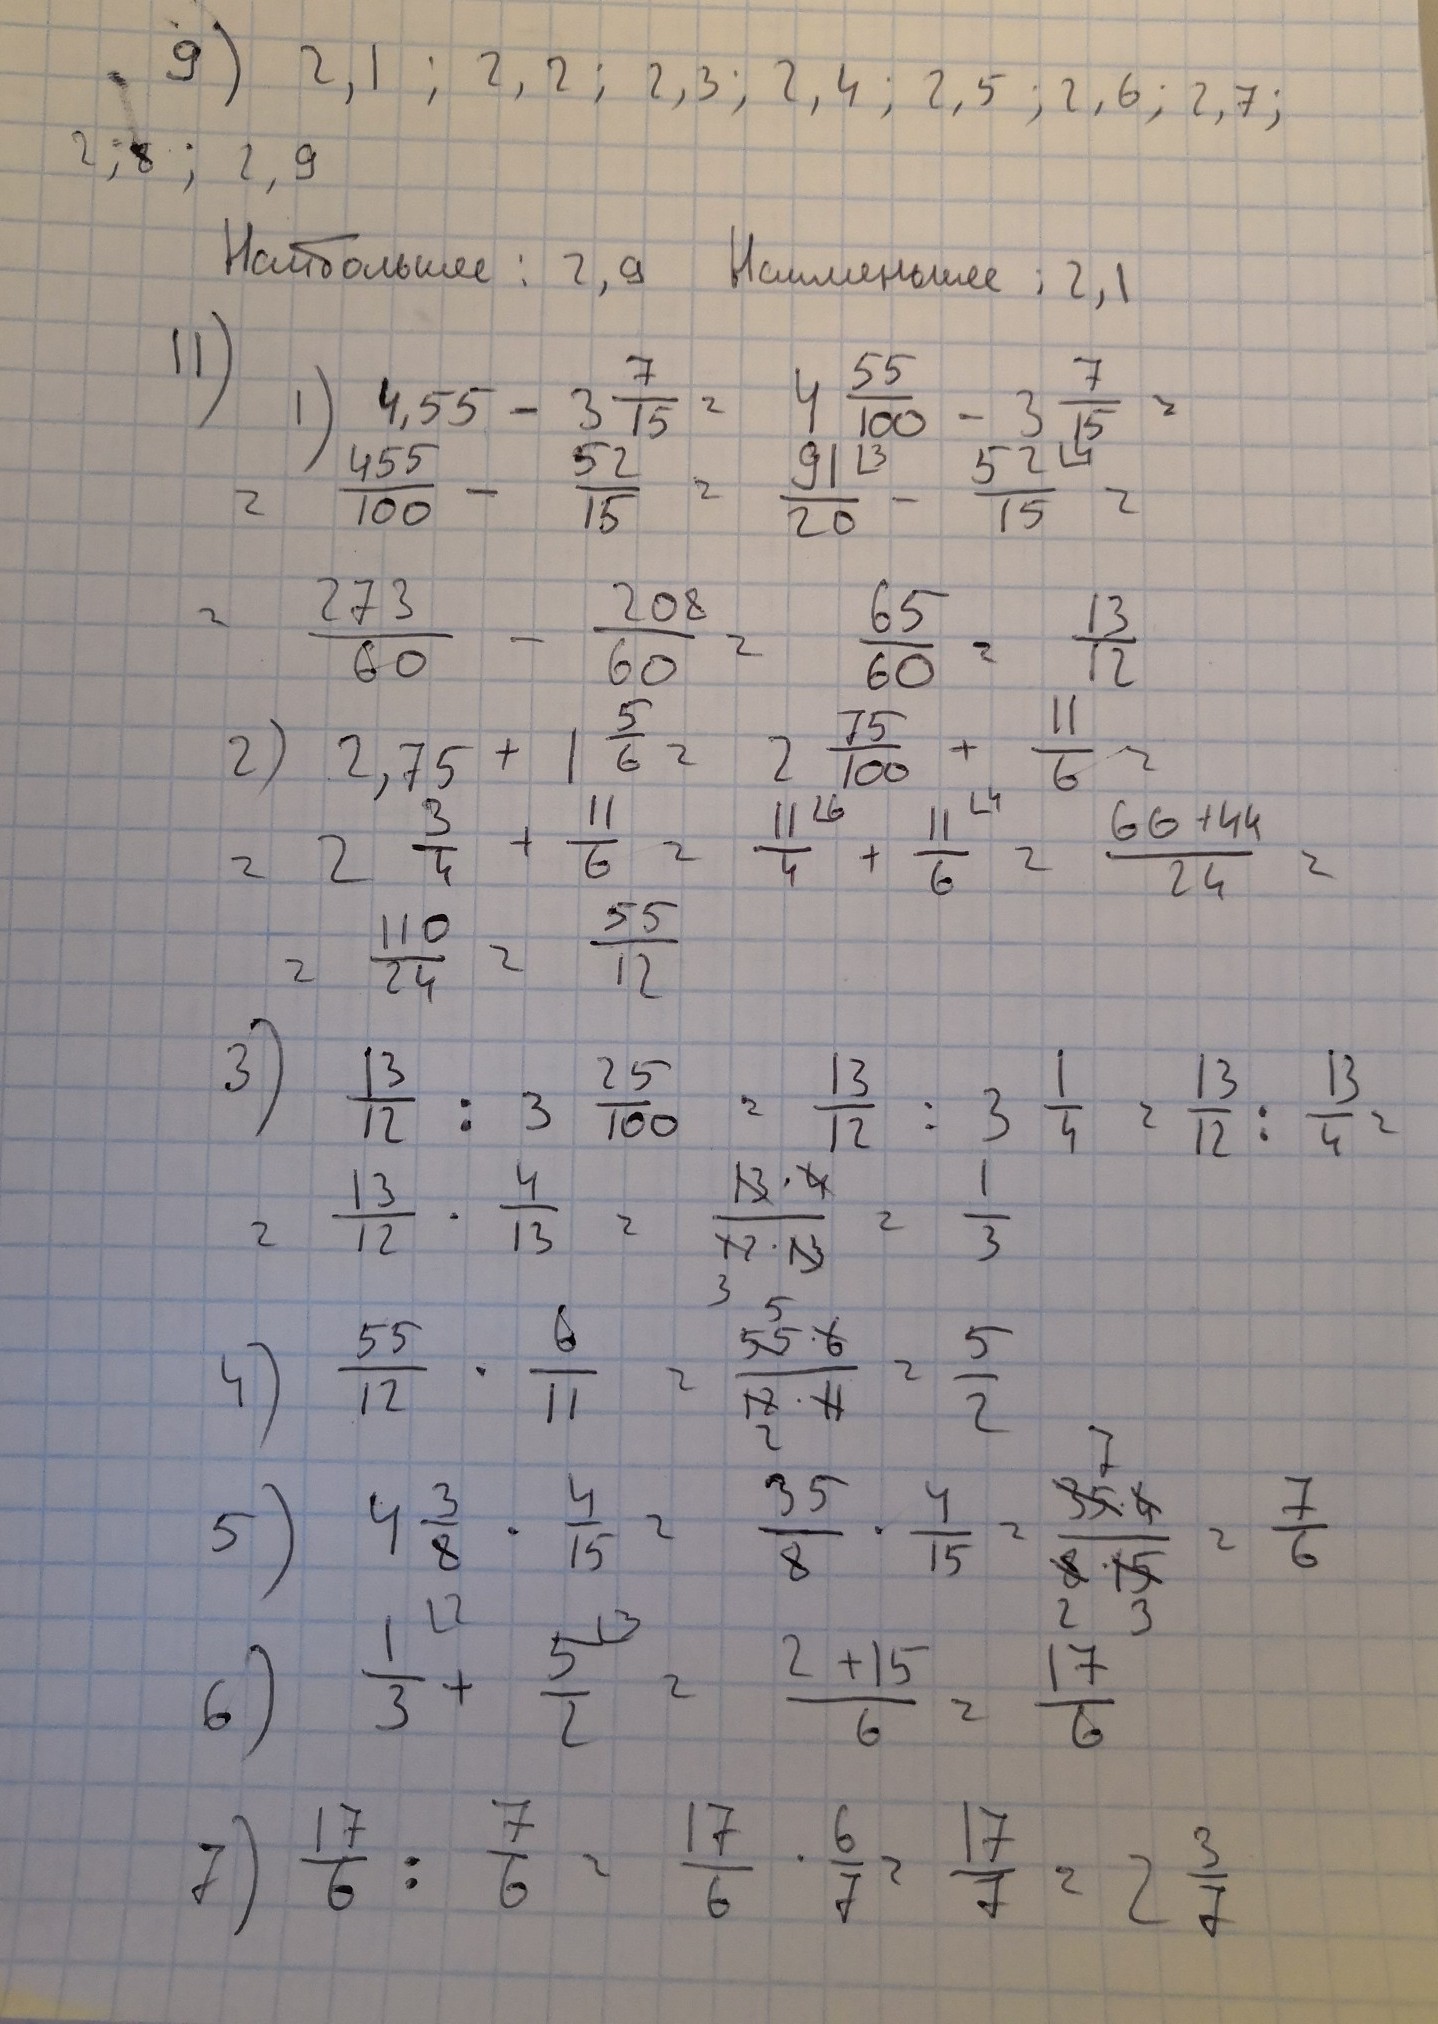 9) 2,1 ; 2,2; 2,3; 2,4; 2,5; 2,6; 2,7;
2;8; 2,9
Наибольшее: 2,9 Наименьшее: 2,1
11)
1) 4,55 - 3 7/15 = 4 55/100 - 3 7/15 =
= 455/100 - 52/15 = 91/20 ⌞3 - 52/15 ⌞4 =
= 273/60 - 208/60 = 65/60 = 13/12
2) 2,75 + 1 5/6 = 2 75/100 + 11/6 =
= 2 3/4 + 11/6 = 11/4 ⌞6 + 11/6 ⌞4 = 66+44/24 =
= 110/24 = 55/12
3) 13/12 : 3 25/100 = 13/12 : 3 1/4 = 13/12 : 13/4 =
= 13/12 · 4/13 = 13·4/12·13 = 1/3
3
5
4) 55/12 · 6/11 = 55·6/12·11 = 5/2
2
7
5) 4 3/8 · 4/15 = 35/8 · 4/15 = 35·4/8·15 = 7/6
2 3
6) 1/3 ⌞2 + 5/2 ⌞3 = 2+15/6 = 17/6
7) 17/6 : 7/6 = 17/6 · 6/7 = 17/7 = 2 3/7